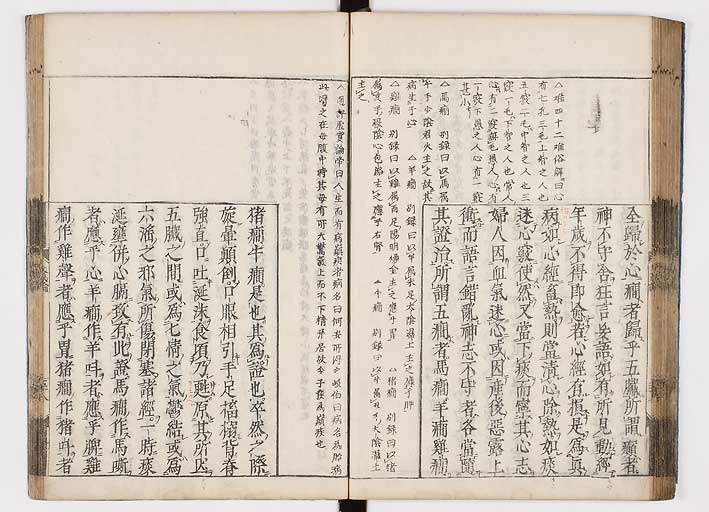 △难四十二难俗解曰心
有七孔三毛上智之人也
五竅二毛中智之人也三
竅一毛下智之人也常人
心有二竅無毛愚人心有
一竅下愚之人心有一竅
甚小
△馬癇 別録曰以馬属
午手少陰君火主之故其
病生于心 △羊癇 別録曰以羊属未足太陰濕土主之應于脾
△雞癇 別録曰以雞属酉足陽明燥金主之應于胃 △猪癇 別録曰以猪
属亥手厥陰心包絡主之應乎右腎 △牛癇 別録曰以牛属丑足太陰濕土
主之
全歸於心癇者歸乎五臟所謂癲者
神不守舍狂言妄語如有所見動經
年歲不得即愈若心經有損是爲眞
病如心經畜熱則當清心除熱如痰
迷心竅使然又當下痰而寧其心志
婦人因血氣迷心或因産後惡露上
衝而語言錯亂神志不守者各當隨
其證治所謂五癇者馬癇羊癇雞癇
△通評虛實論帝曰人生而有病巓疾者病名曰何安所得之岐伯曰病名爲胎病
此得之在母腹中時其母有所大驚氣上而不下精氣并居故令子發爲巓疾也
猪癇牛癇是也其爲證也卒然之際
旋暈顛倒口眼相引手足搐搦背脊
強直口吐涎沫食頃乃甦原其所因
五臟之間或爲七情之氣鬱結或爲
六淫之邪氣所傷閉塞諸經一時痰
涎壅併心膈致有此證馬癇作馬嘶
者應乎心羊癇作羊叫者應乎脾雞
癇作雞聲者應乎胃猪癇作猪叫者